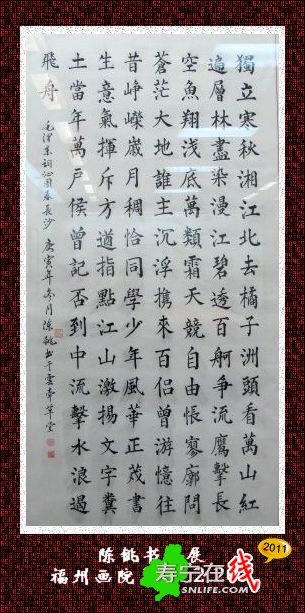 獨立寒秋湘江北去橘子洲頭看萬山紅
遍層林盡染漫江碧透百舸争流鷹擊長
空魚翔浅底萬類霜天競自由悵寥廓問
蒼茫大地誰主沉浮携來百侣曾游憶往
昔峥嵘嵗月稠恰同學少年風華正茂書
生意氣揮斥方遒指點江山激揚文字糞
土當年萬户侯曾記否到中流擊水浪遏
飛舟
毛澤東詞沁園春長沙 庚寅年冬月陳銚书于雲草堂
陈铫书 展
福州画院
2011
寿宁在线
SNLIFE.COM